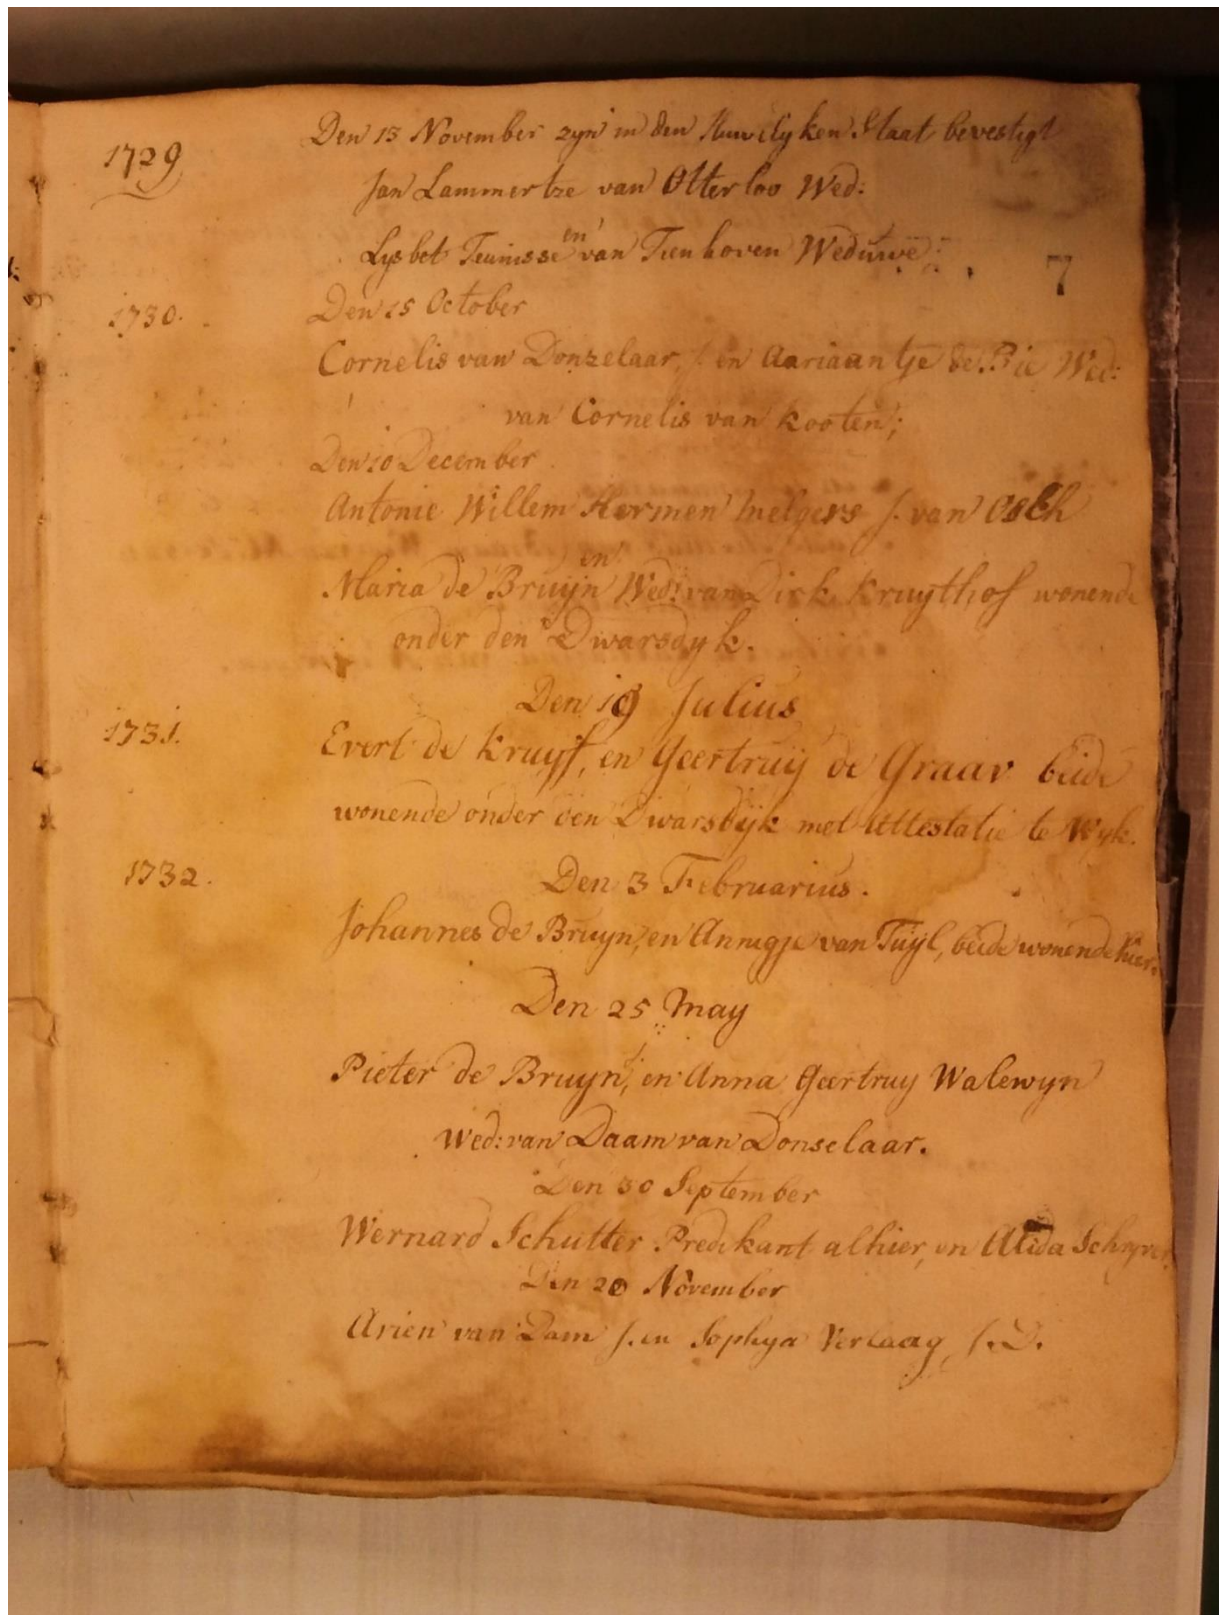 1729 Den 13 November zyn in den Huwelyken Staat bevestigt
Jan Lammertze van Otterloo Wed:
en
Lysbet Teunisse van Tienhoven Weduwe:
7
1730. Den 15 October
Cornelis van Donzelaar, J. en Aariaantje de Bie Wed:
van Cornelis van Kooten;
Den 10 December
Antonie Willem Hermen Melgers J. van Osch
en
Maria de Bruijn Wed: van Dirk Kruythof wonende
onder den Dwarsdyk.
Den 19 Julius
1731. Evert de Kruyff, en Geertruij de Graav beide
wonende onder den Dwarsdijk met Attestatie te Wyk.
1732. Den 3 Februarius.
Johannes de Bruyn, en Annigje van Tuijl, beide wonende hier.
Den 25 May
Pieter de Bruyn, en Anna Geertruy Walewyn
Wed: van Daam van Donselaar.
Den 30 September
Wernard Schutter Predikant alhier, en Alida
Den 20 November
Arien van Dam J. en Sophya Verlaag J.D.